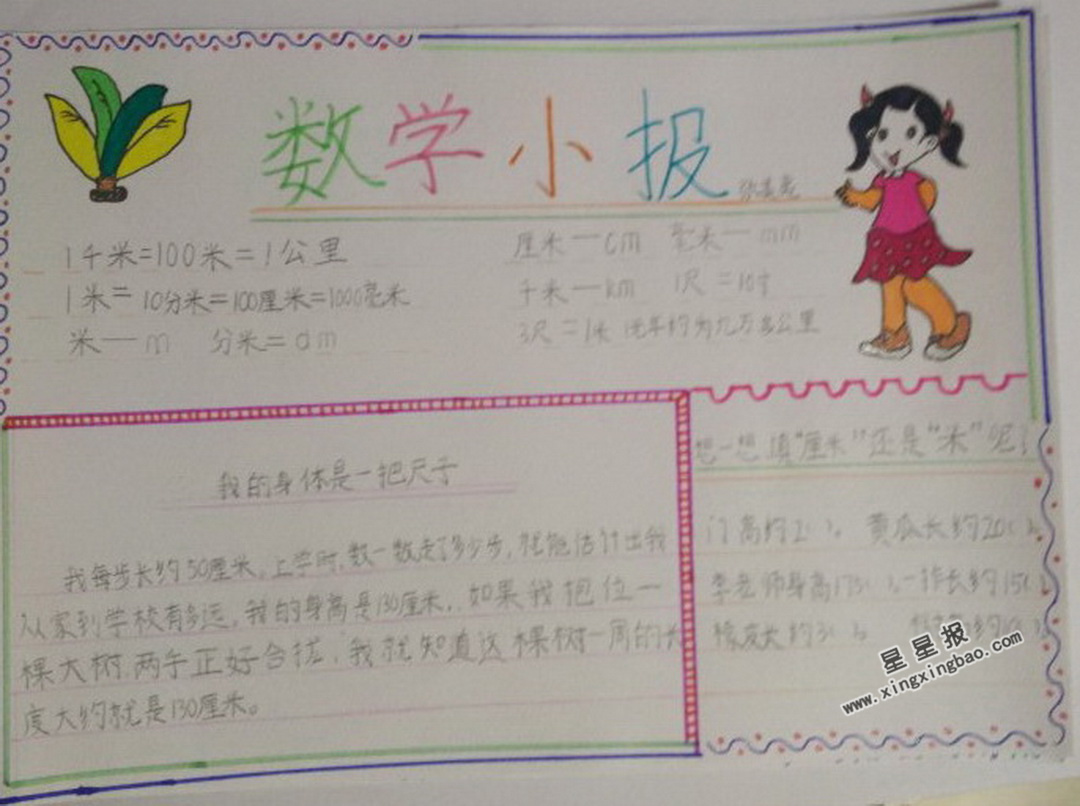 数学小报
1千米=100米=1公里
1米=10分米=100厘米=1000毫米
米—m 分米=dm
厘米—cm 毫米—mm
千米—km 1尺=10寸
3尺=1米 光年约为九万多公里
我的身体是一把尺子
我每步长约50厘米,上学时,数一数走了多少步,就能估计出我
从家到学校有多远,我的身高是130厘米,如果我抱位一
棵大树,两手正好合拢,我就知道这棵树一周的长
度大约就是130厘米。
想一想填"厘米"还是"米"呢?
门高约2( )。 黄瓜长约20( )。
李老师身高173( )。一拃长约15( )
橡皮长约3( )。
星星报
www.xingxingbao.com